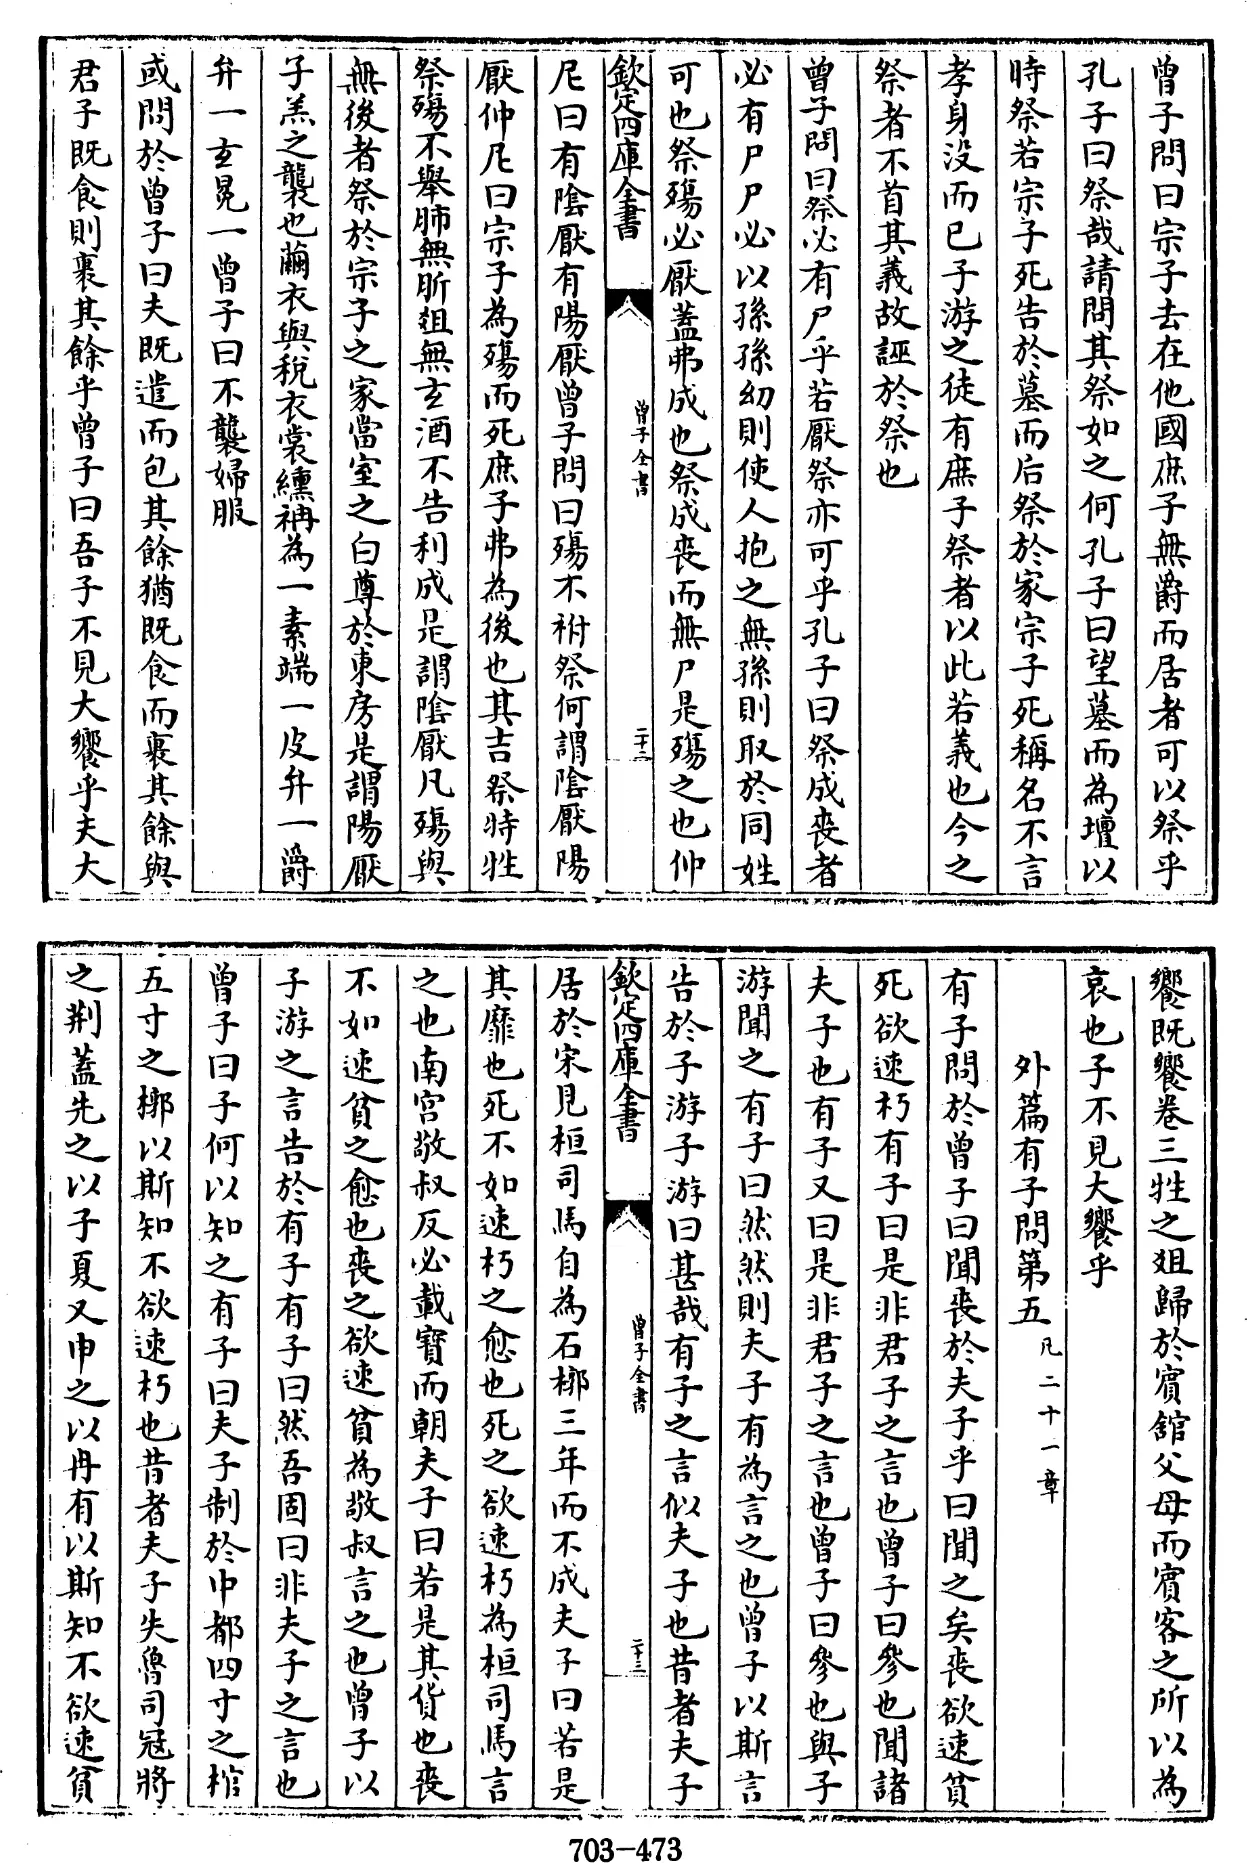 曾子問曰宗子去在他國庶子無爵而居者可以祭乎
孔子曰祭哉請問其祭如之何孔子曰望墓而為壇以
時祭若宗子死告於墓而后祭於家宗子死稱名不言
孝身没而已子游之徒有庶子祭者以此若義也今之
祭者不首其義故誣於祭也
曾子問曰祭必有尸乎若厭祭亦可乎孔子曰祭成喪者
必有尸尸必以孫孫幼則使人抱之無孫則取於同姓
可也祭殤必厭蓋弗成也祭成喪而無尸是殤之也仲
欽定四庫全書
曾子全書
二十二
尼曰有陰厭有陽厭曾子問曰殤不祔祭何謂陰厭陽
厭仲尼曰宗子為殤而死庶子弗為後也其吉祭特牲
祭殤不舉肺無肵俎無玄酒不告利成是謂陰厭凡殤與
無後者祭於宗子之家當室之白尊於東房是謂陽厭
子羔之襲也繭衣與税衣裳纁袡為一素端一皮弁一爵
弁一玄冕一曾子曰不襲婦服
或問於曾子曰夫既遣而包其餘猶既食而裹其餘與
君子既食則裹其餘乎曾子曰吾子不見大饗乎夫大
饗既饗卷三牲之俎歸於賓舘父母而賓客之所以為
哀也子不見大饗乎
外篇有子問第五 凡二十一章
有子問於曾子曰聞喪於夫子乎曰聞之矣喪欲速貧
死欲速朽有子曰是非君子之言也曾子曰參也聞諸
夫子也有子又曰是非君子之言也曾子曰參也與子
游聞之有子曰然然則夫子有為言之也曾子以斯言
告於子游子游曰甚哉有子之言似夫子也昔者夫子
欽定四庫全書
曾子全書
二十三
居於宋見桓司馬自為石槨三年而不成夫子曰若是
其靡也死不如速朽之愈也死之欲速朽為桓司馬言
之也南宫敬叔反必載寳而朝夫子曰若是其貨也喪
不如速貧之愈也喪之欲速貧為敬叔言之也曾子以
子游之言告於有子有子曰然吾固曰非夫子之言也
曾子曰子何以知之有子曰夫子制於中都四寸之棺
五寸之槨以斯知不欲速朽也昔者夫子失魯司寇將
之荆蓋先之以子夏又申之以冉有以斯知不欲速貧
703-473